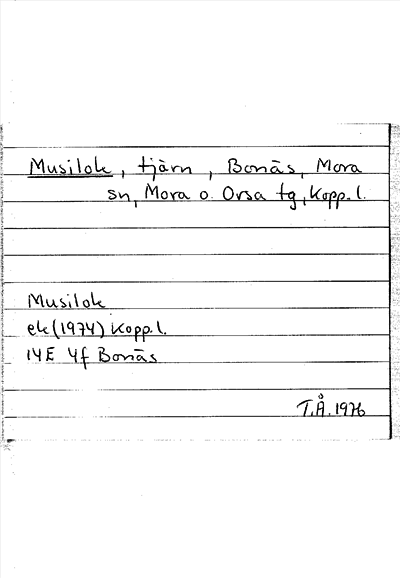 Musilok, tjärn, Bonäs, Mora
sn, Mora o. Orsa tg, Kopp. l.
Musilok
ek (1974) Kopp. l.
14E 4f Bonäs
T.Å. 1976